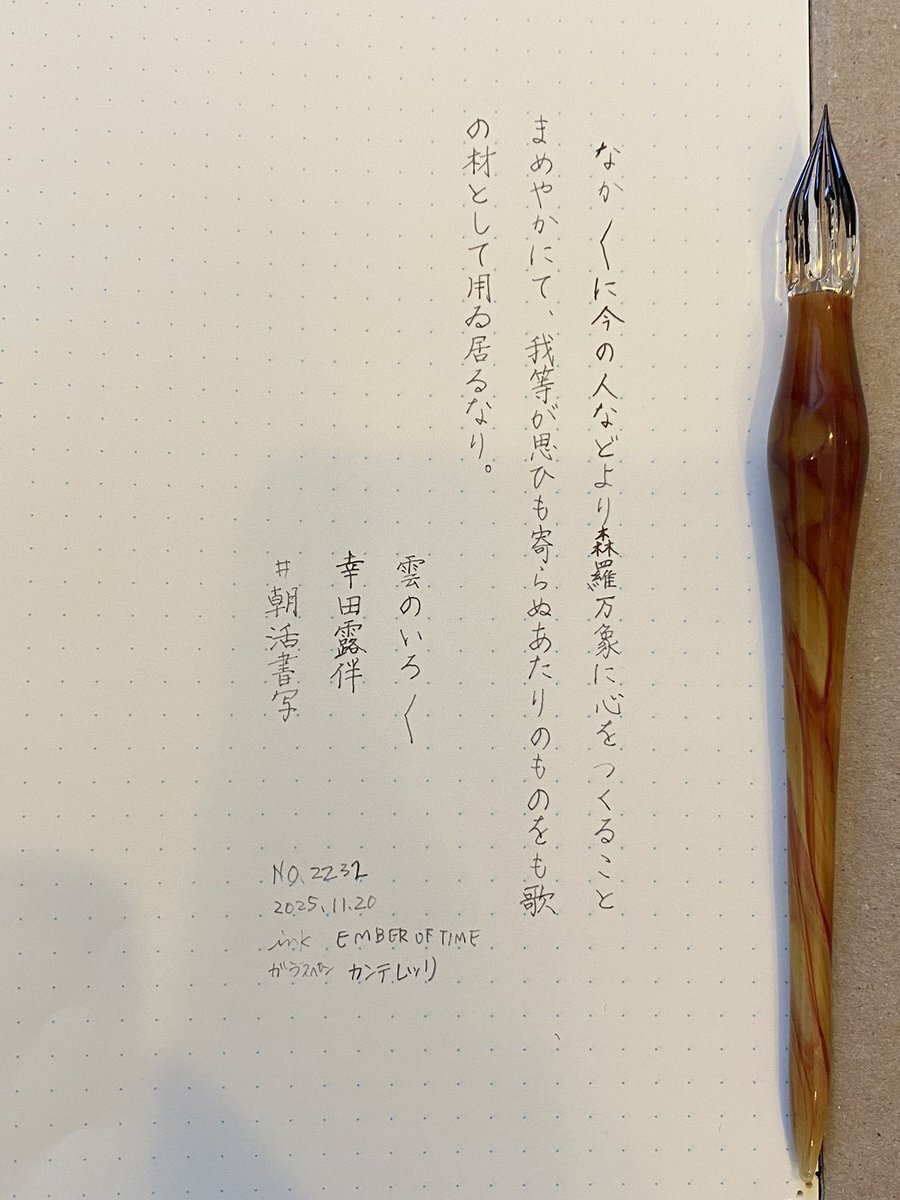 なか〱に今の人などより森羅万象に心をつくること
まめやかにて、我等が思ひも寄らぬあたりのものをも歌
の材として用ゐ居るなり。
雲のいろ〱
幸田露伴
#朝活書写
NO.2232
2025.11.20
ink EMBER OF TIME
ガラスペン カンテレッリ